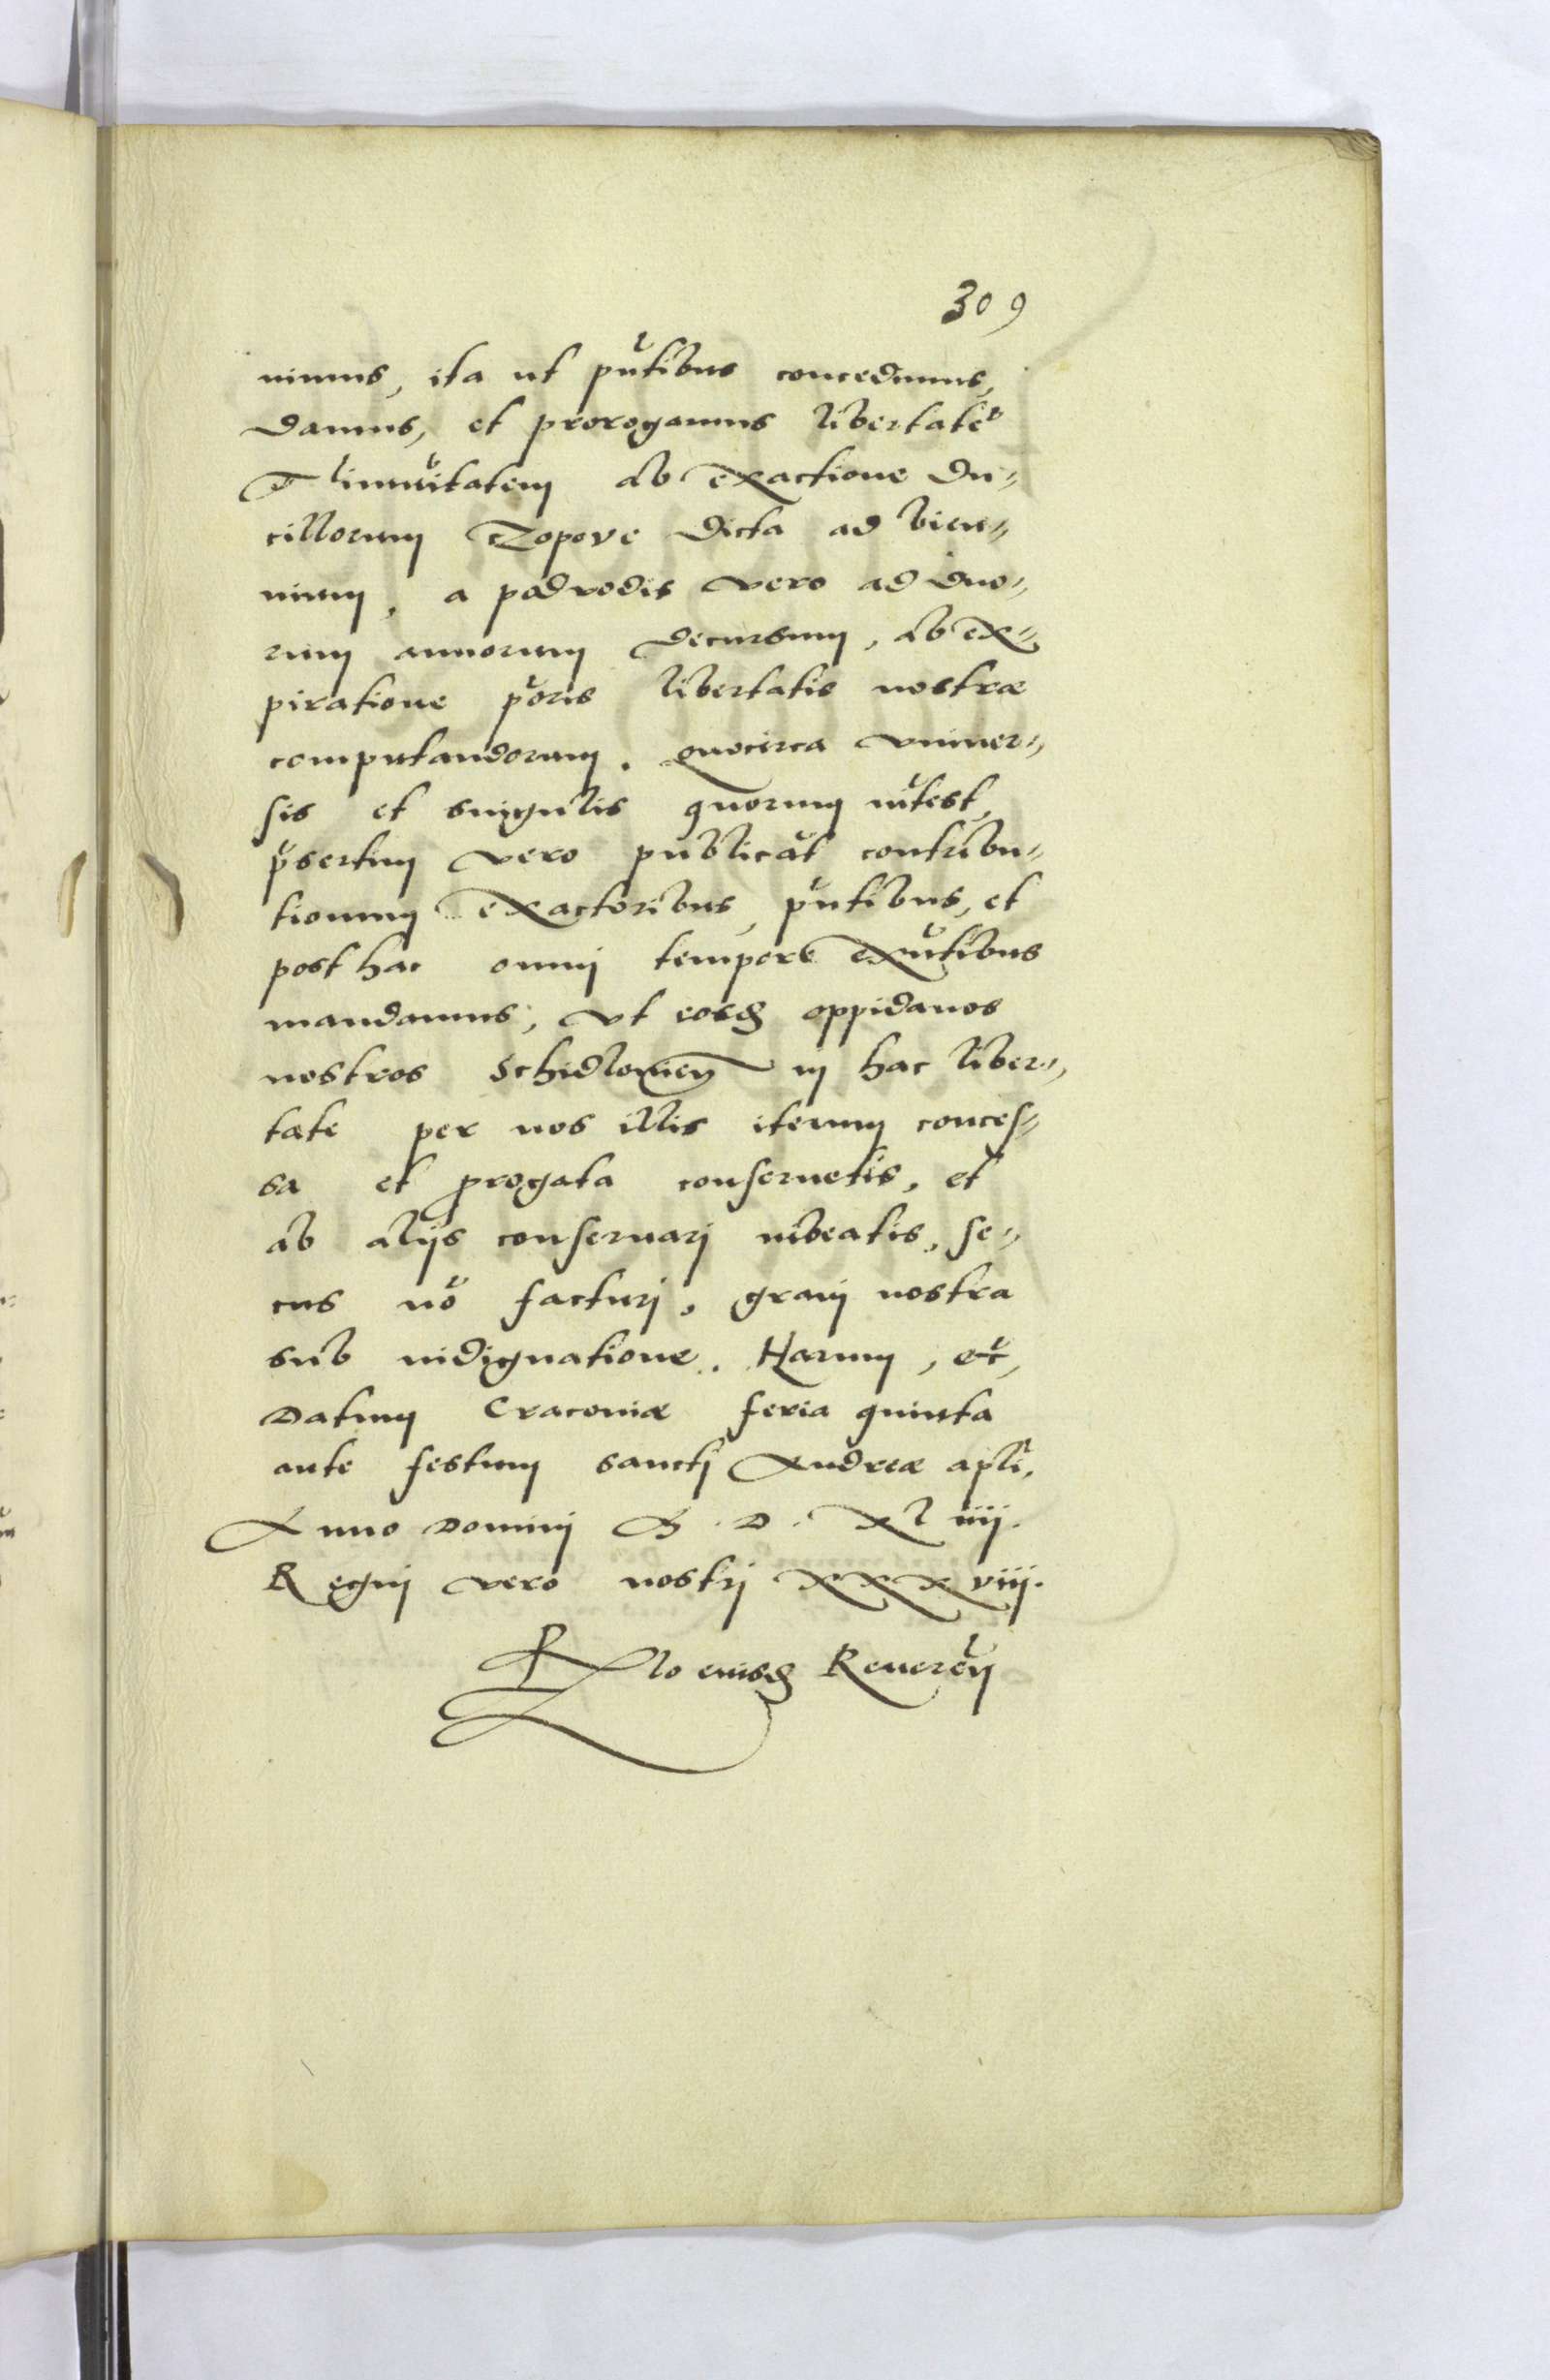 309
nimus, ita ut pñtibus concedimus,
damus, et prorogamus libertatẽ
et imũitatem ab exactione du„
cillorum Czopove dicta ad bien„
nium, a podrodis vero ad duo„
rum annorum decursum, ab ex„
piratione p̃oris libertatis nostræ
computandorum. Quocirca vniuer„
sis et singulis quorum intẽst,
p̃sertim vero publicar̃ contribu„
tionum exactoribus, pñtibus, et
post hac omni tempore exñtibus
mandamus, vt eosdẽ oppidanos
nostros Schidlovieñ in hac liber„
tate per nos illis iterum conces„
sa et prõgata conseruetis, et
ab alijs conseruarj iubeatis, se„
cus nõ facturj, graui nostra
sub indignatione. Harum, etc̃,
Datum Cracoviæ feria quinta
ante festum sanctj Andreæ apl̃i,
Anno Dominj M. D. xl iiij.
Regnj vero nostrj xxxviij.
Rlo eiusdẽ Reuereñ